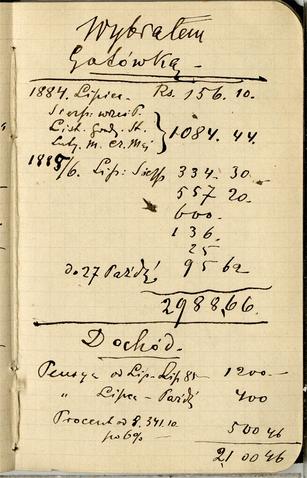 Wybrałem
Gotówką_
1884. Lipiec. Rs. 156. 10.
Sierp: wrzes P.
List. Grudz. St. } 1084. 44.
Luty. M. Cz. Maj
1885/6. Lip: Sierp 334. 30
557 20.
600.
136.
25
do 27 Paźdź 95 62
2988,66.
Dochód.
Pensya od Lip-Lip 85 1200—
" Lipca - Paźdź 400
Procent od S. 341.10 po 6% 500 46
21 00 46